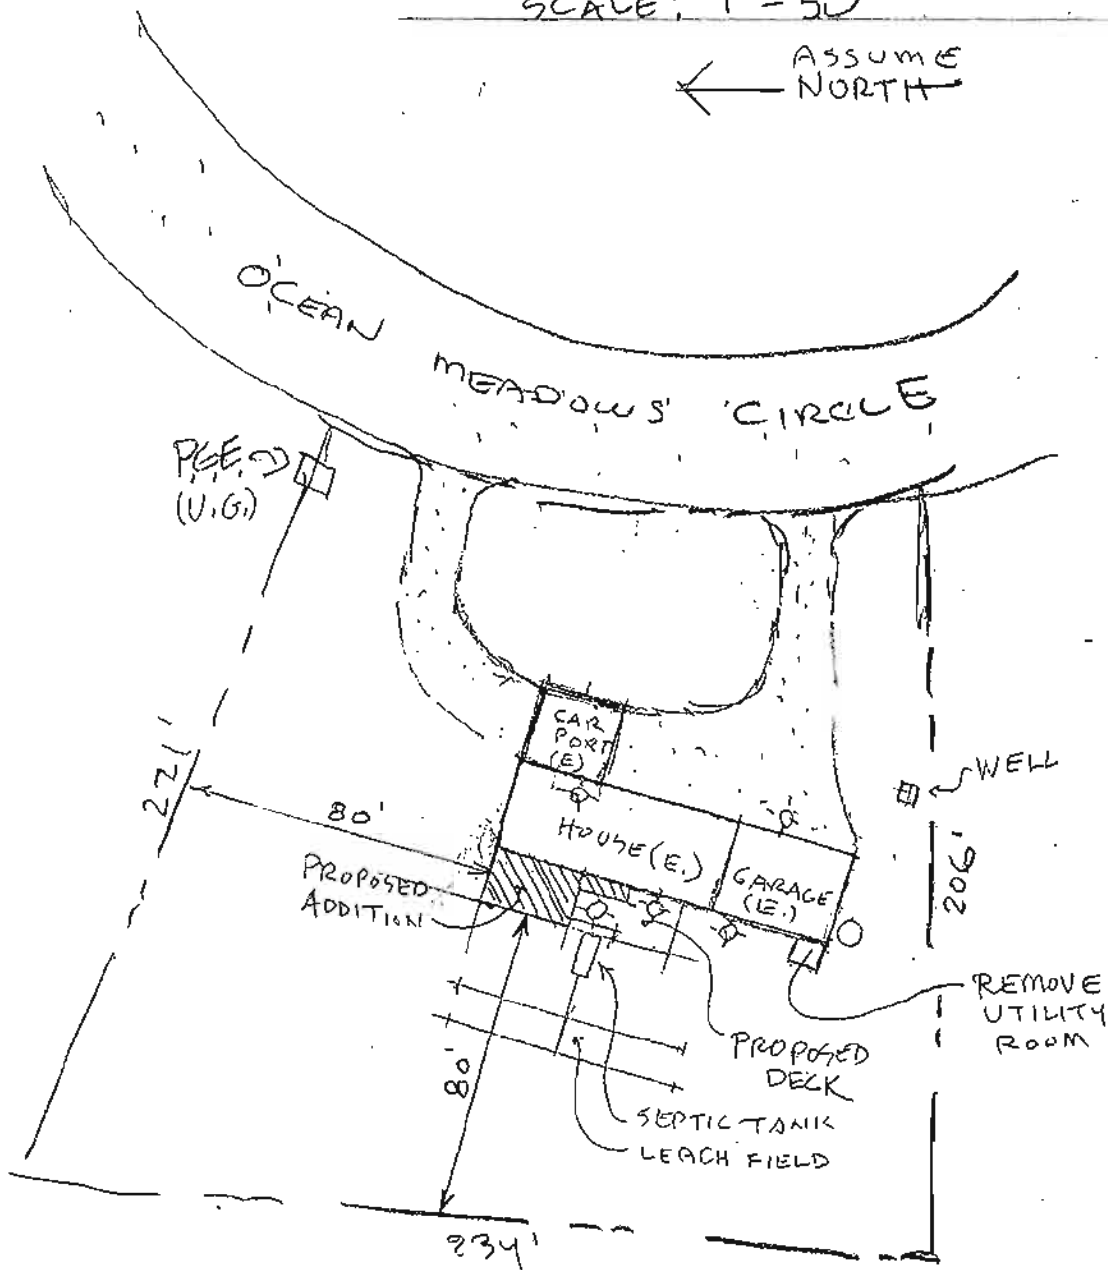 SCALE: 1"=50'
ASSUME
NORTH
OCEAN MEADOWS CIRCLE
P.G.E.
(U.G.)
221'
80'
CAR
PORT
(E)
HOUSE (E.)
GARAGE
(E.)
WELL
206'
PROPOSED
ADDITION
REMOVE
UTILITY
ROOM
PROPOSED
DECK
80'
SEPTIC TANK
LEACH FIELD
234'